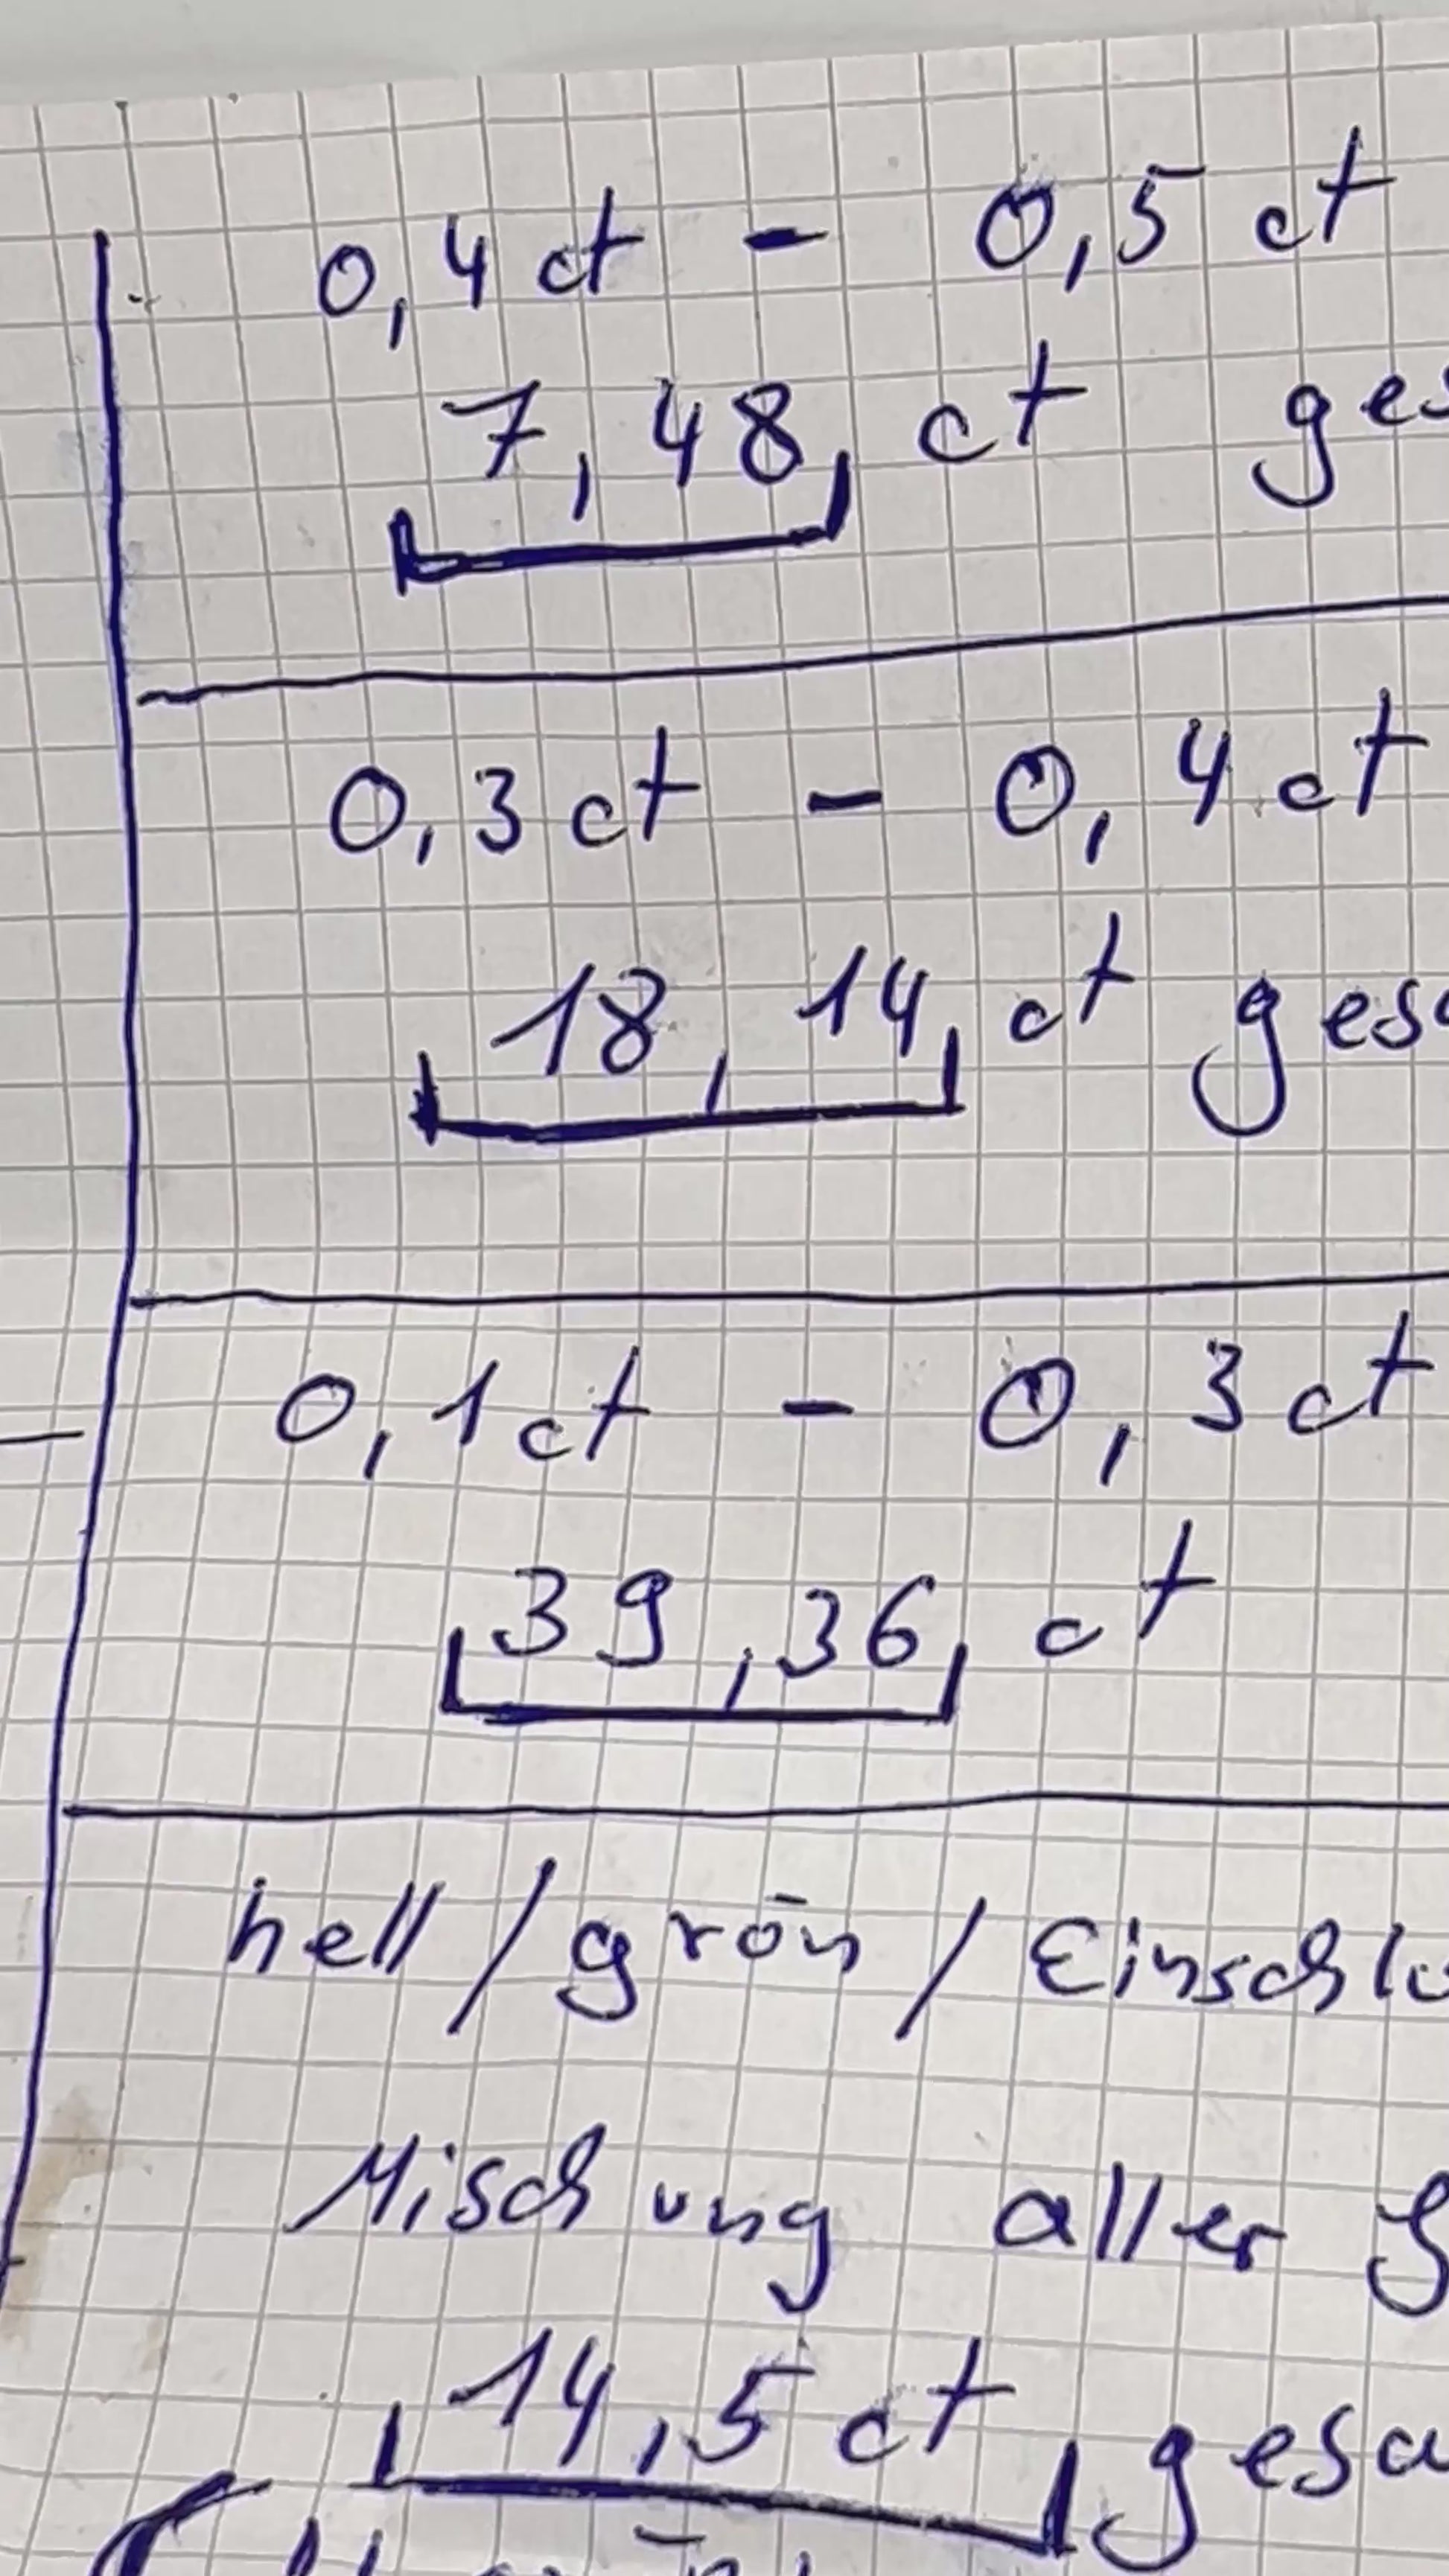 0,4 ct - 0,5 ct
7,48 ct ges
0,3 ct - 0,4 ct
18,14 ct gesa
0,1 ct - 0,3 ct
39,36 ct
hell/grün/Einschlu
Mischung aller
14,5 ct gesa